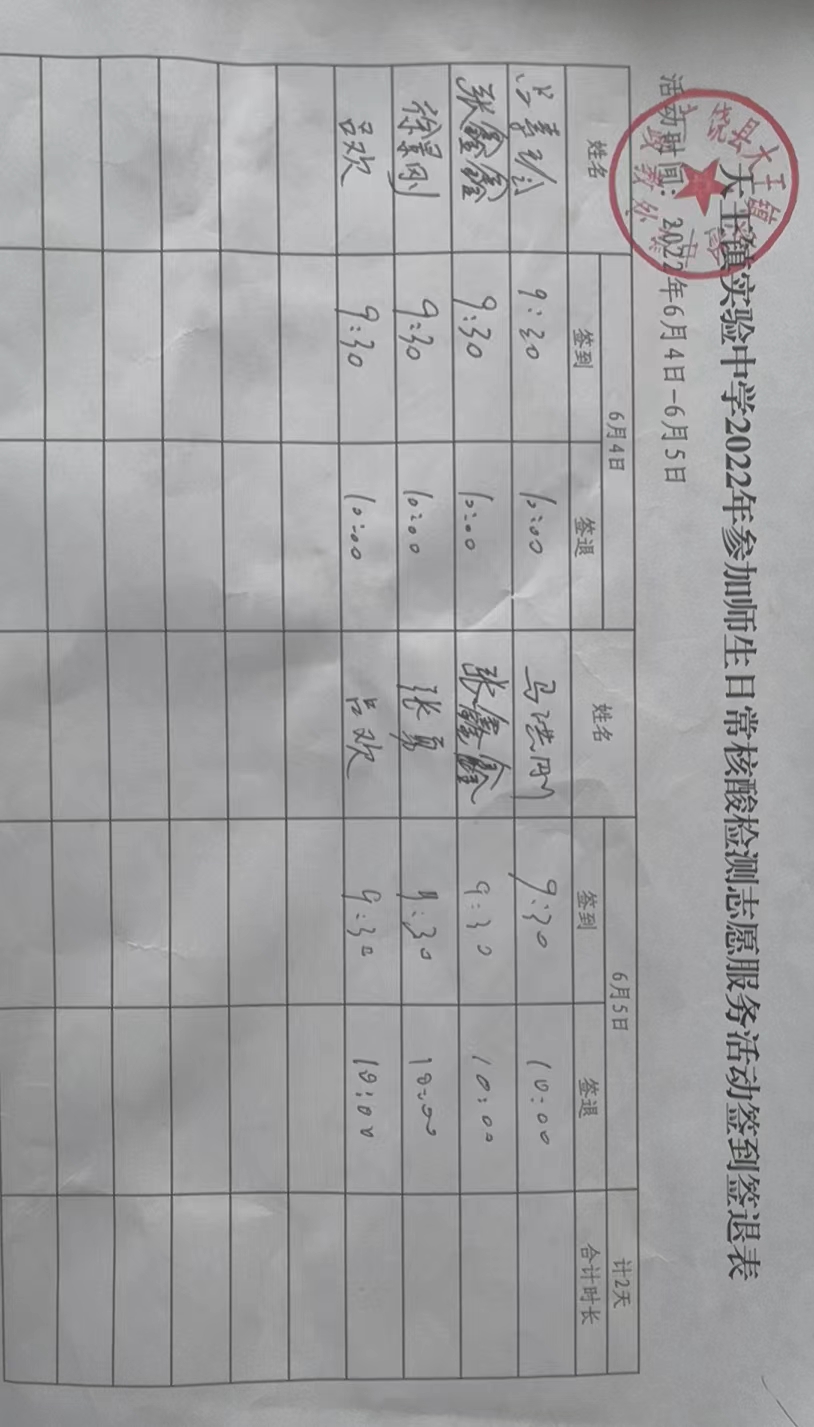 大王镇实验中学2022年参加师生日常核酸检测志愿服务活动签到签退表
活动时间：2022年6月4日-6月5日
姓名 6月4日 姓名 6月5日 计2天
签到 签退 签到 签退 合计时长
9:30 10:00 马洪刚 9:30 10:00
张鑫鑫 9:30 10:00 张鑫鑫 9:30 10:00
徐景刚 9:30 10:00 张勇 9:30 10:00
吕欢 9:30 10:00 吕欢 9:30 10:00